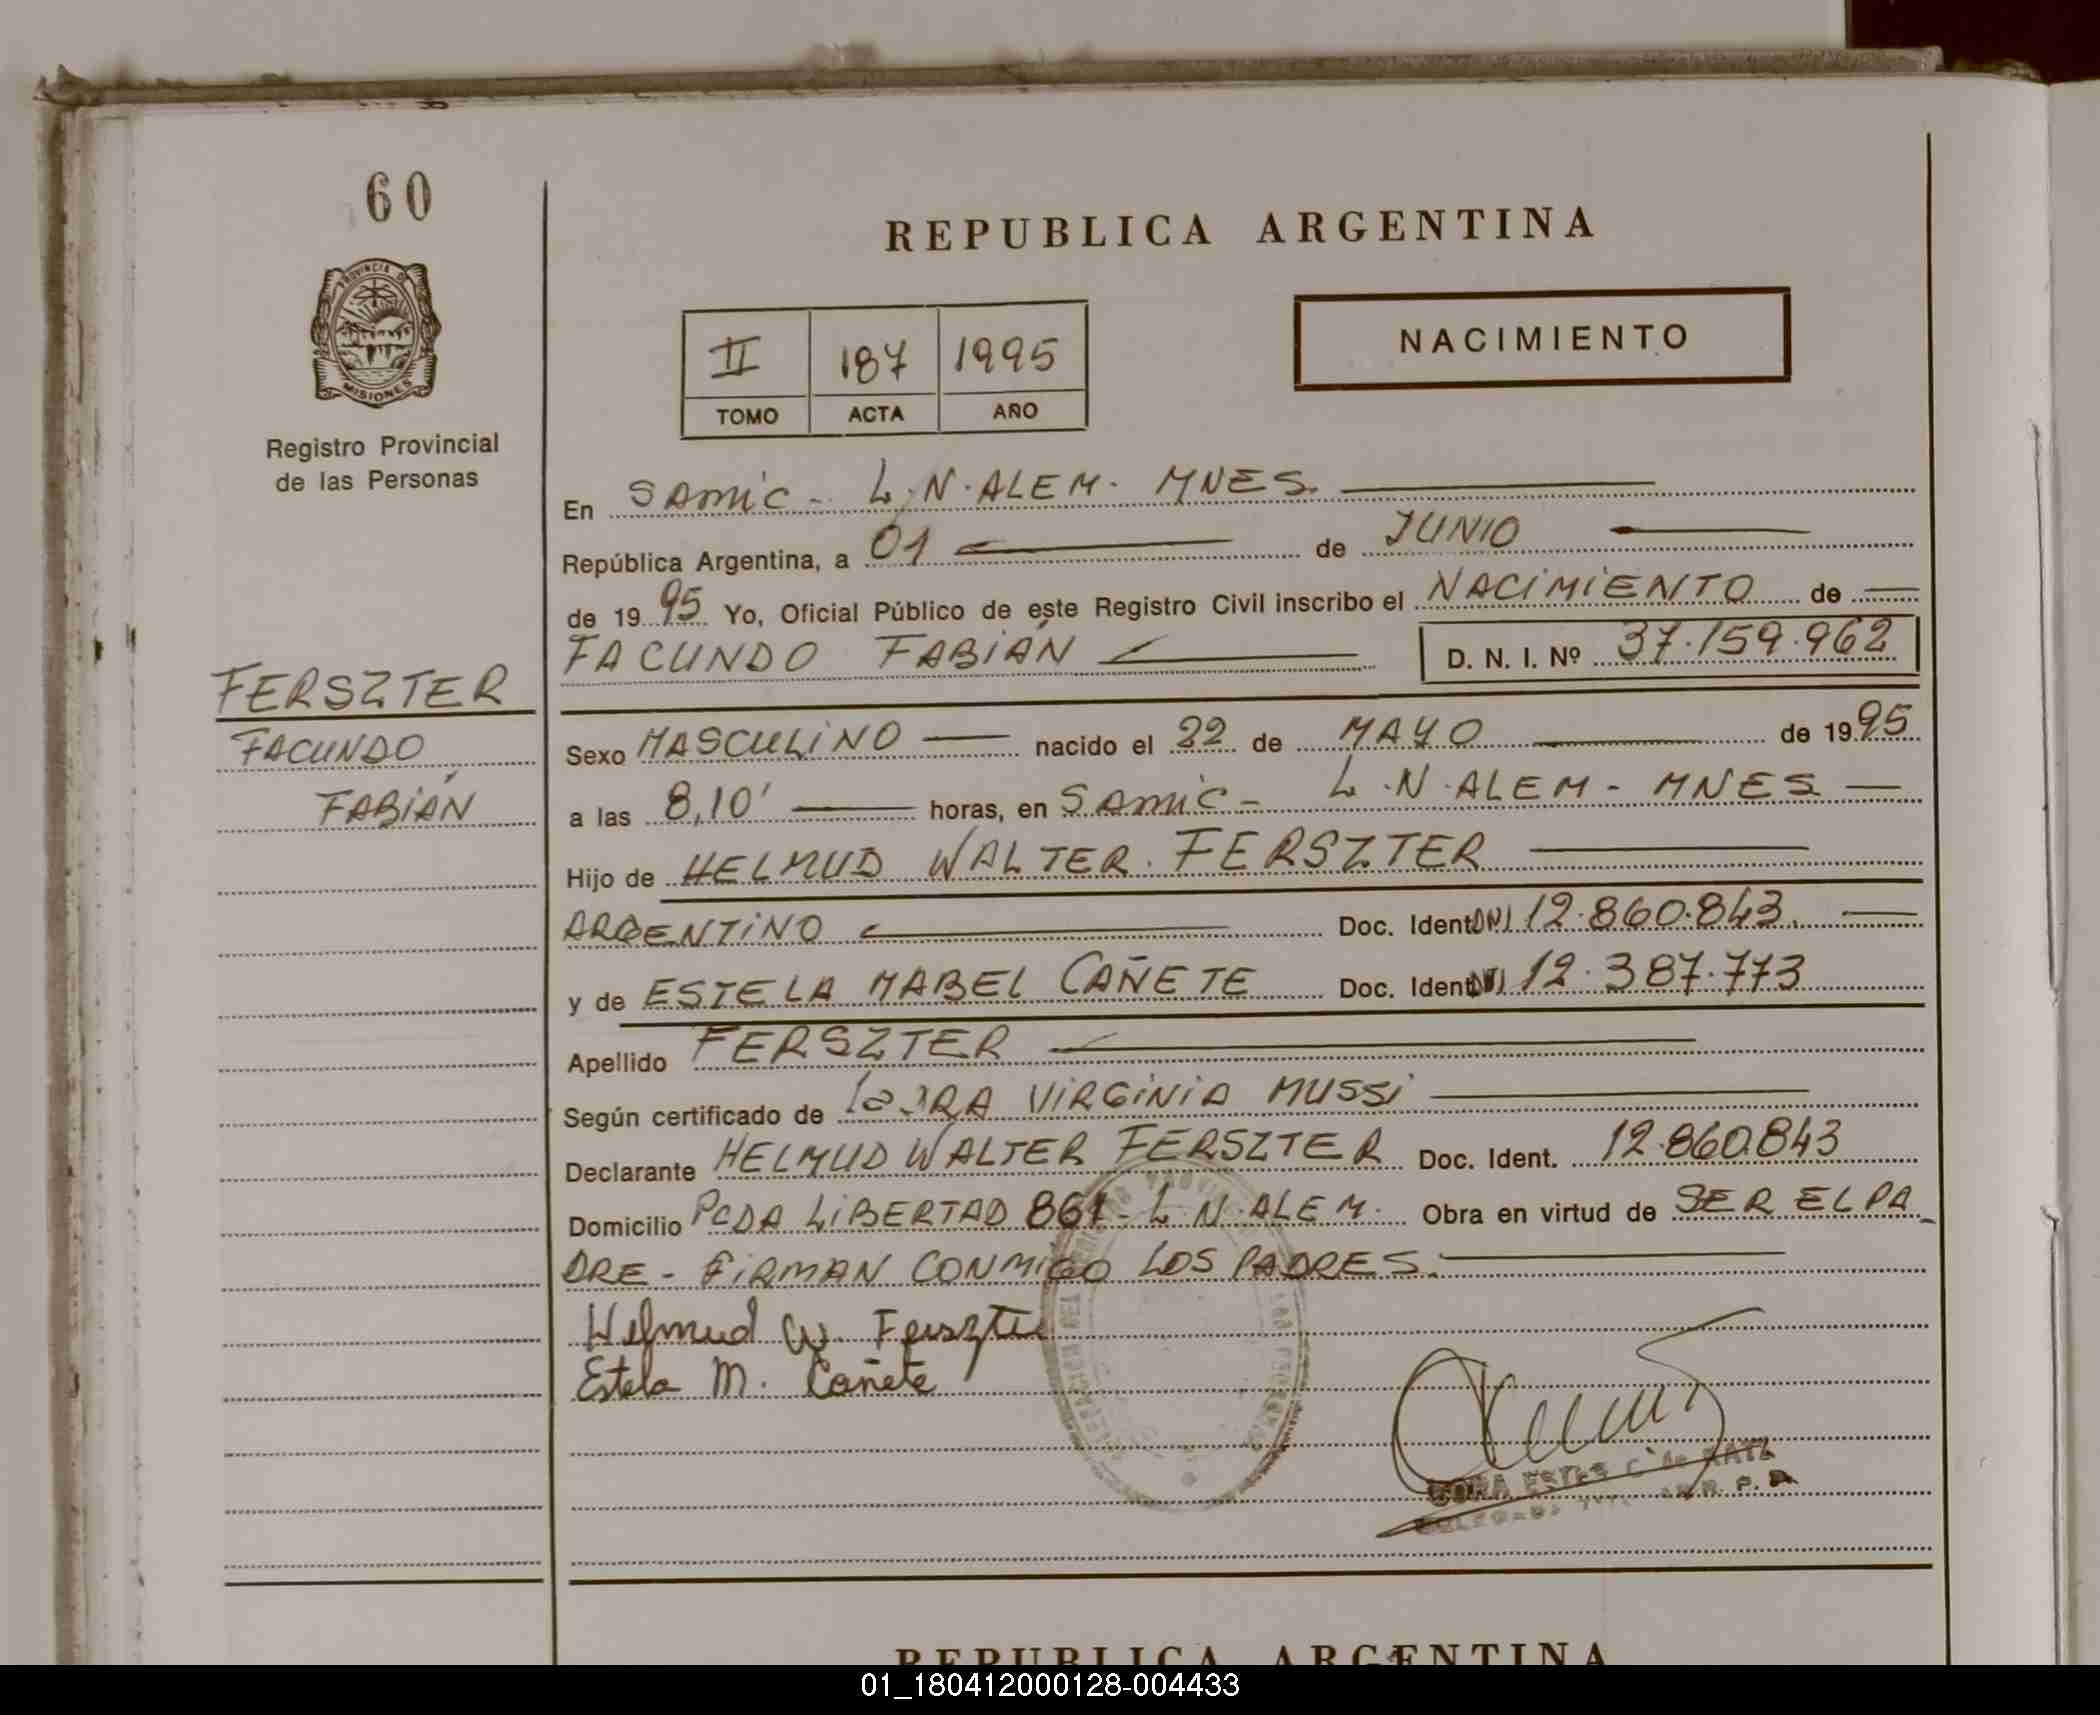 60
REPUBLICA ARGENTINA
PROVINCIA DE
MISIONES
Registro Provincial
de las Personas
II 187 1995
TOMO ACTA AÑO
NACIMIENTO
En SAMIC - L.N. ALEM - MNES.
República Argentina, a 01 de JUNIO
de 1995 Yo, Oficial Público de este Registro Civil inscribo el NACIMIENTO de
FACUNDO FABIÁN D. N. I. Nº 37.159.962
FERSZTER
FACUNDO
FABIÁN
Sexo MASCULINO nacido el 22 de MAYO de 1995
a las 8,10' horas, en SAMIC - L.N. ALEM - MNES
Hijo de HELMUD WALTER FERSZTER
ARGENTINO Doc. Ident. DNI 12.860.843.
y de ESTELA MABEL CAÑETE Doc. Ident. DNI 12.387.773
Apellido FERSZTER
Según certificado de VIRGINIA MUSSI
Declarante HELMUD WALTER FERSZTER Doc. Ident. 12.860.843
Domicilio PCDA LIBERTAD 861 - L.N. ALEM. Obra en virtud de SER EL PA-
DRE - FIRMAN CONMIGO LOS PADRES.
Helmud W. Ferszter
Estela M. Cañete
R. P. P.
REPUBLICA ARGENTINA
01_180412000128-004433